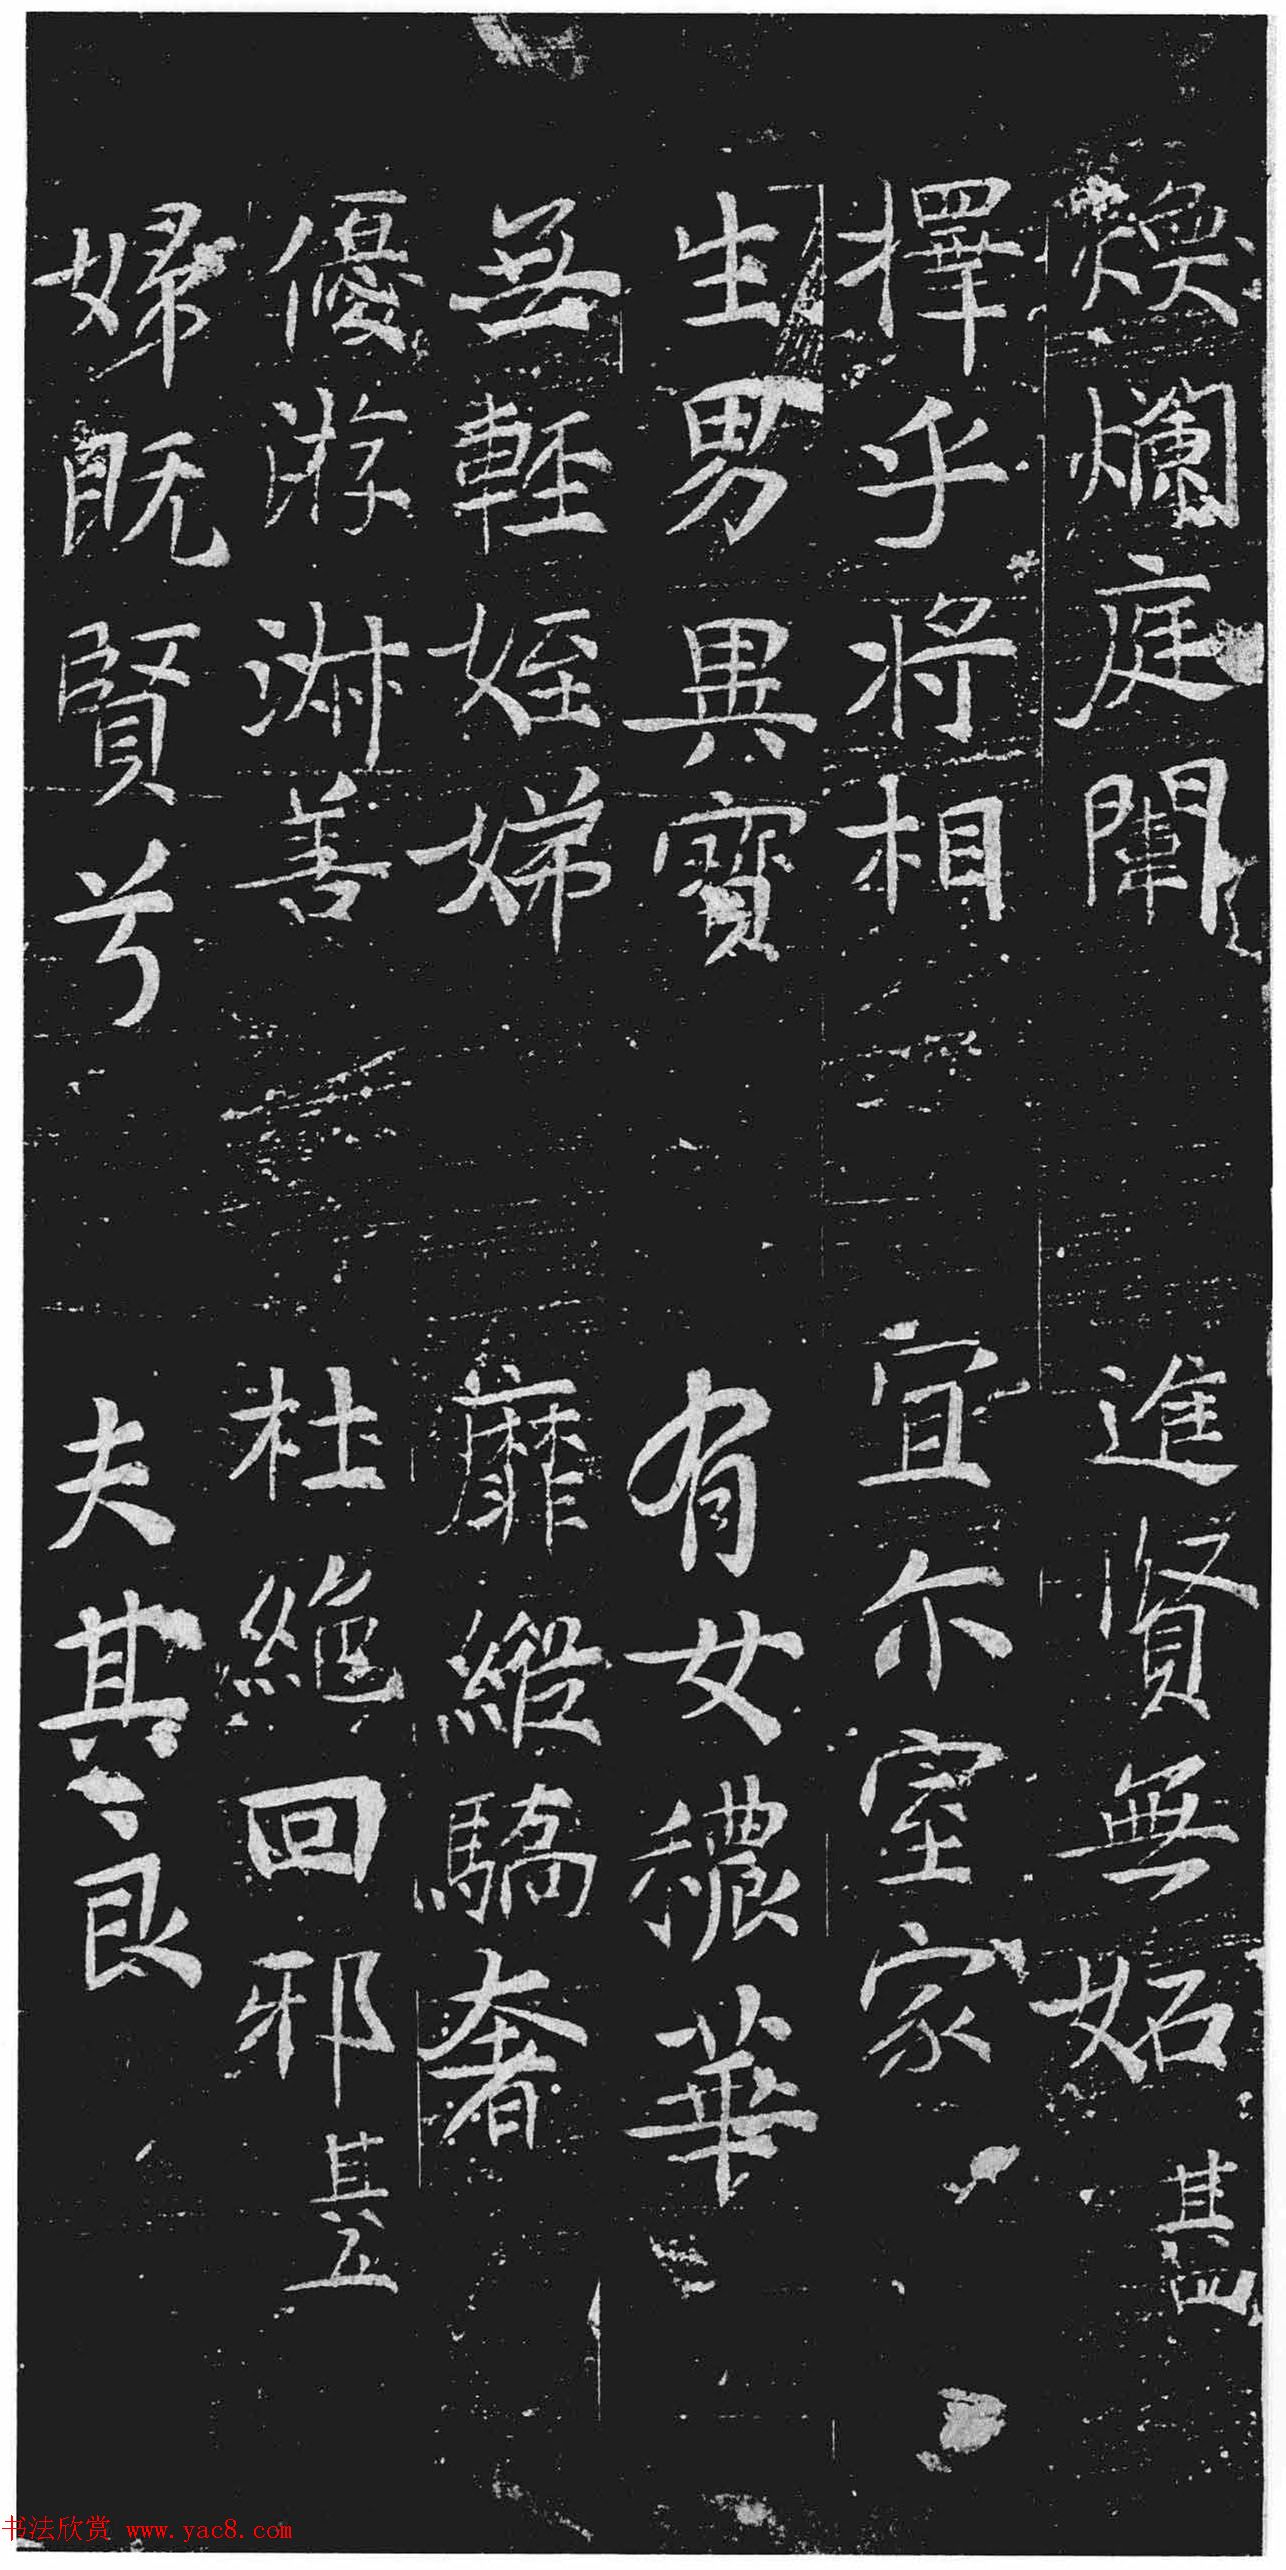 煥爛庭闈 進賢無妬 其四
擇乎將相 宜尔室家
生男異寶 有女穠華
無輕姪娣 靡縱驕奢
優游淋善 杜絕回邪 其五
婦既賢兮 夫其良
书法欣赏 www.yac8.com